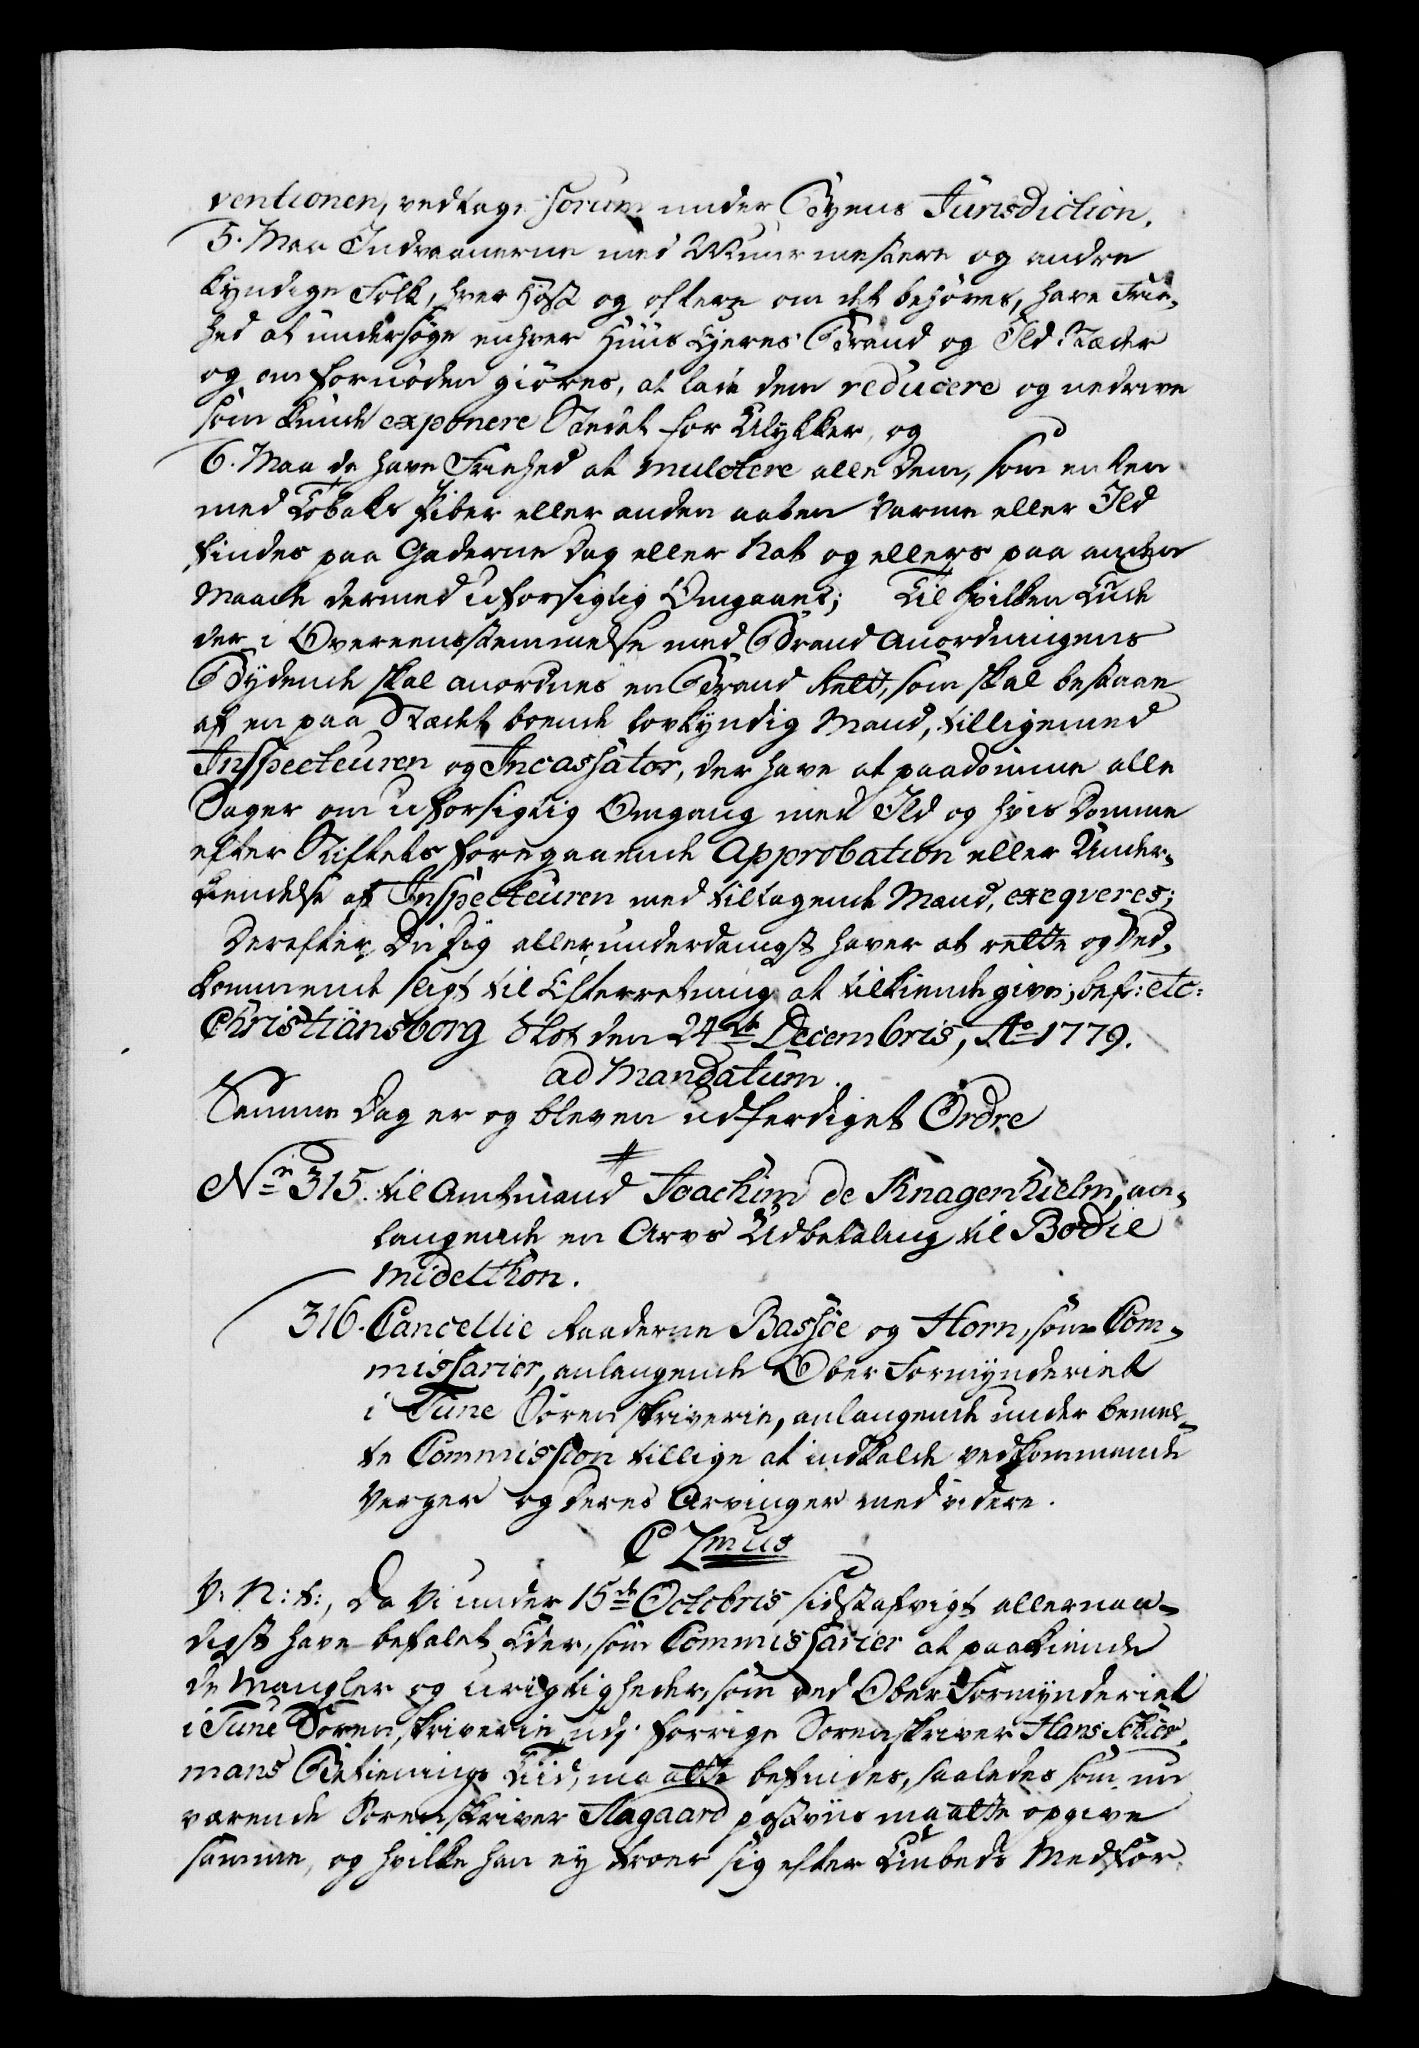 ventionen, vedtage forum under Byens Jurisdiction.
5. Maa Indvaanerne med Muurmestere og andre
kyndige Folk, hver Høst og oftere om det behøves, have Frie-
hed at undersøge enhver Huus Ejeres Brand og Ild Stæder
og om fornøden giøres, at lade dem reducere og nedrive
som kunde exponere Stedet for Ulykker, og
6. Maa de have Friehed at mulctere alle dem, som enten
med Tobaks Piber eller anden aaben Varme eller Ild
findes paa Gaderne Dag eller Nat og ellers paa anden
Maade dermed uforsigtig Omgaaes; Til hvilken Ende
der i Overeensstemmelse med Brand Anordningens
Bydende skal anordnes en Brand Rett, som skal bestaae
af en paa Stædet boende lovkyndig Mand, tilligemed
Inspecteuren og Incassator, der have at paadømme alle
Sager om uforsigtig Omgang med Ild og hvis Domme
efter Stiftets foregaaende Approbation eller Under-
kiendelse af Inspecteuren med tiltagende Mænd, exeqveres;
Derefter Du dig allerunderdanigst haver at rette og Ved-
kommende sligt til Efterretning at tilkiendegive; bef: etc:
Christiansborg Slot den 24de Decembris, Ao 1779.
ad Mandatum.
Samme Dag er og bleven udferdiget Ordre
Nr 315. til Amtmand Joachim de Knagenhielm, an-
langende en Arvs Udbetaling til Bodil
Midelthon.
316. Cancellie Raaderne Bassøe og Horn, som Com-
missarier, anlangende Ober Formynderiet
i Tune Sørenskriverie, anlangende under bemel-
te Commission tillige at indkalde vedkommende
Verger og deres Arvinger med videre.
C 7mus
V: N: t:, Da Vi under 15de Octobris sidstafvigt allernaa-
digst have befalet Eder, som Commissarier at paakiende
de Mangler og urigtigheder, som ved Ober Formynderiet
i Tune Sørenskriverie udj forrige Sorenskriver Hans
mans Betienings Tiid, maatte befindes, saaledes som nu
værende Sorenskriver Aagaard maatte opgive
samme, og hvilke han ey troer sig efter Embeds Medfør